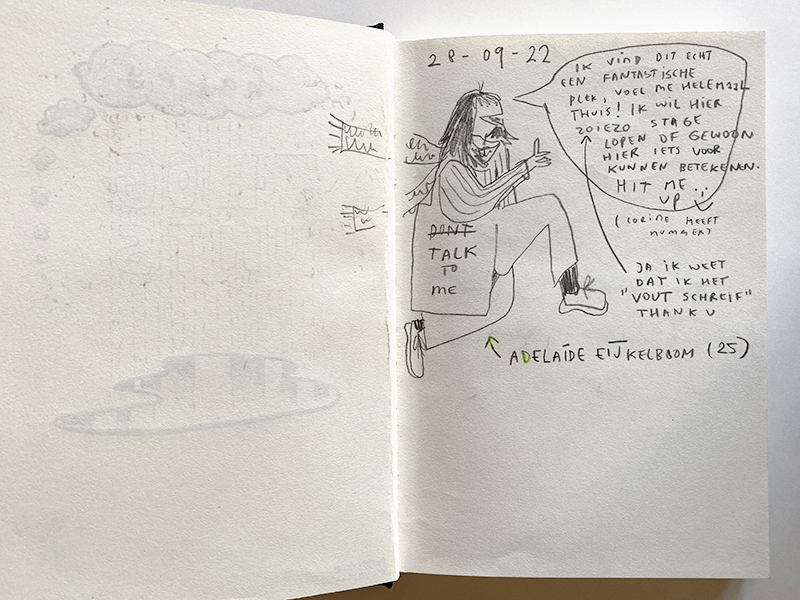 28-09-22
IK VIND DIT ECHT
EEN FANTASTISCHE
PLEK, VOEL ME HELEMAAL
THUIS! IK WIL HIER
ZOIEZO STAGE
LOPEN OF GEWOON
HIER IETS VOOR
KUNNEN BETEKENEN.
HIT ME
UP
(CORINE HEEFT
NUMMER)
DONT
TALK
TO
ME
JA IK WEET
DAT IK HET
"VOUT SCHREIF"
THANK U
ADELAÏDE EIJKELBOOM (25)